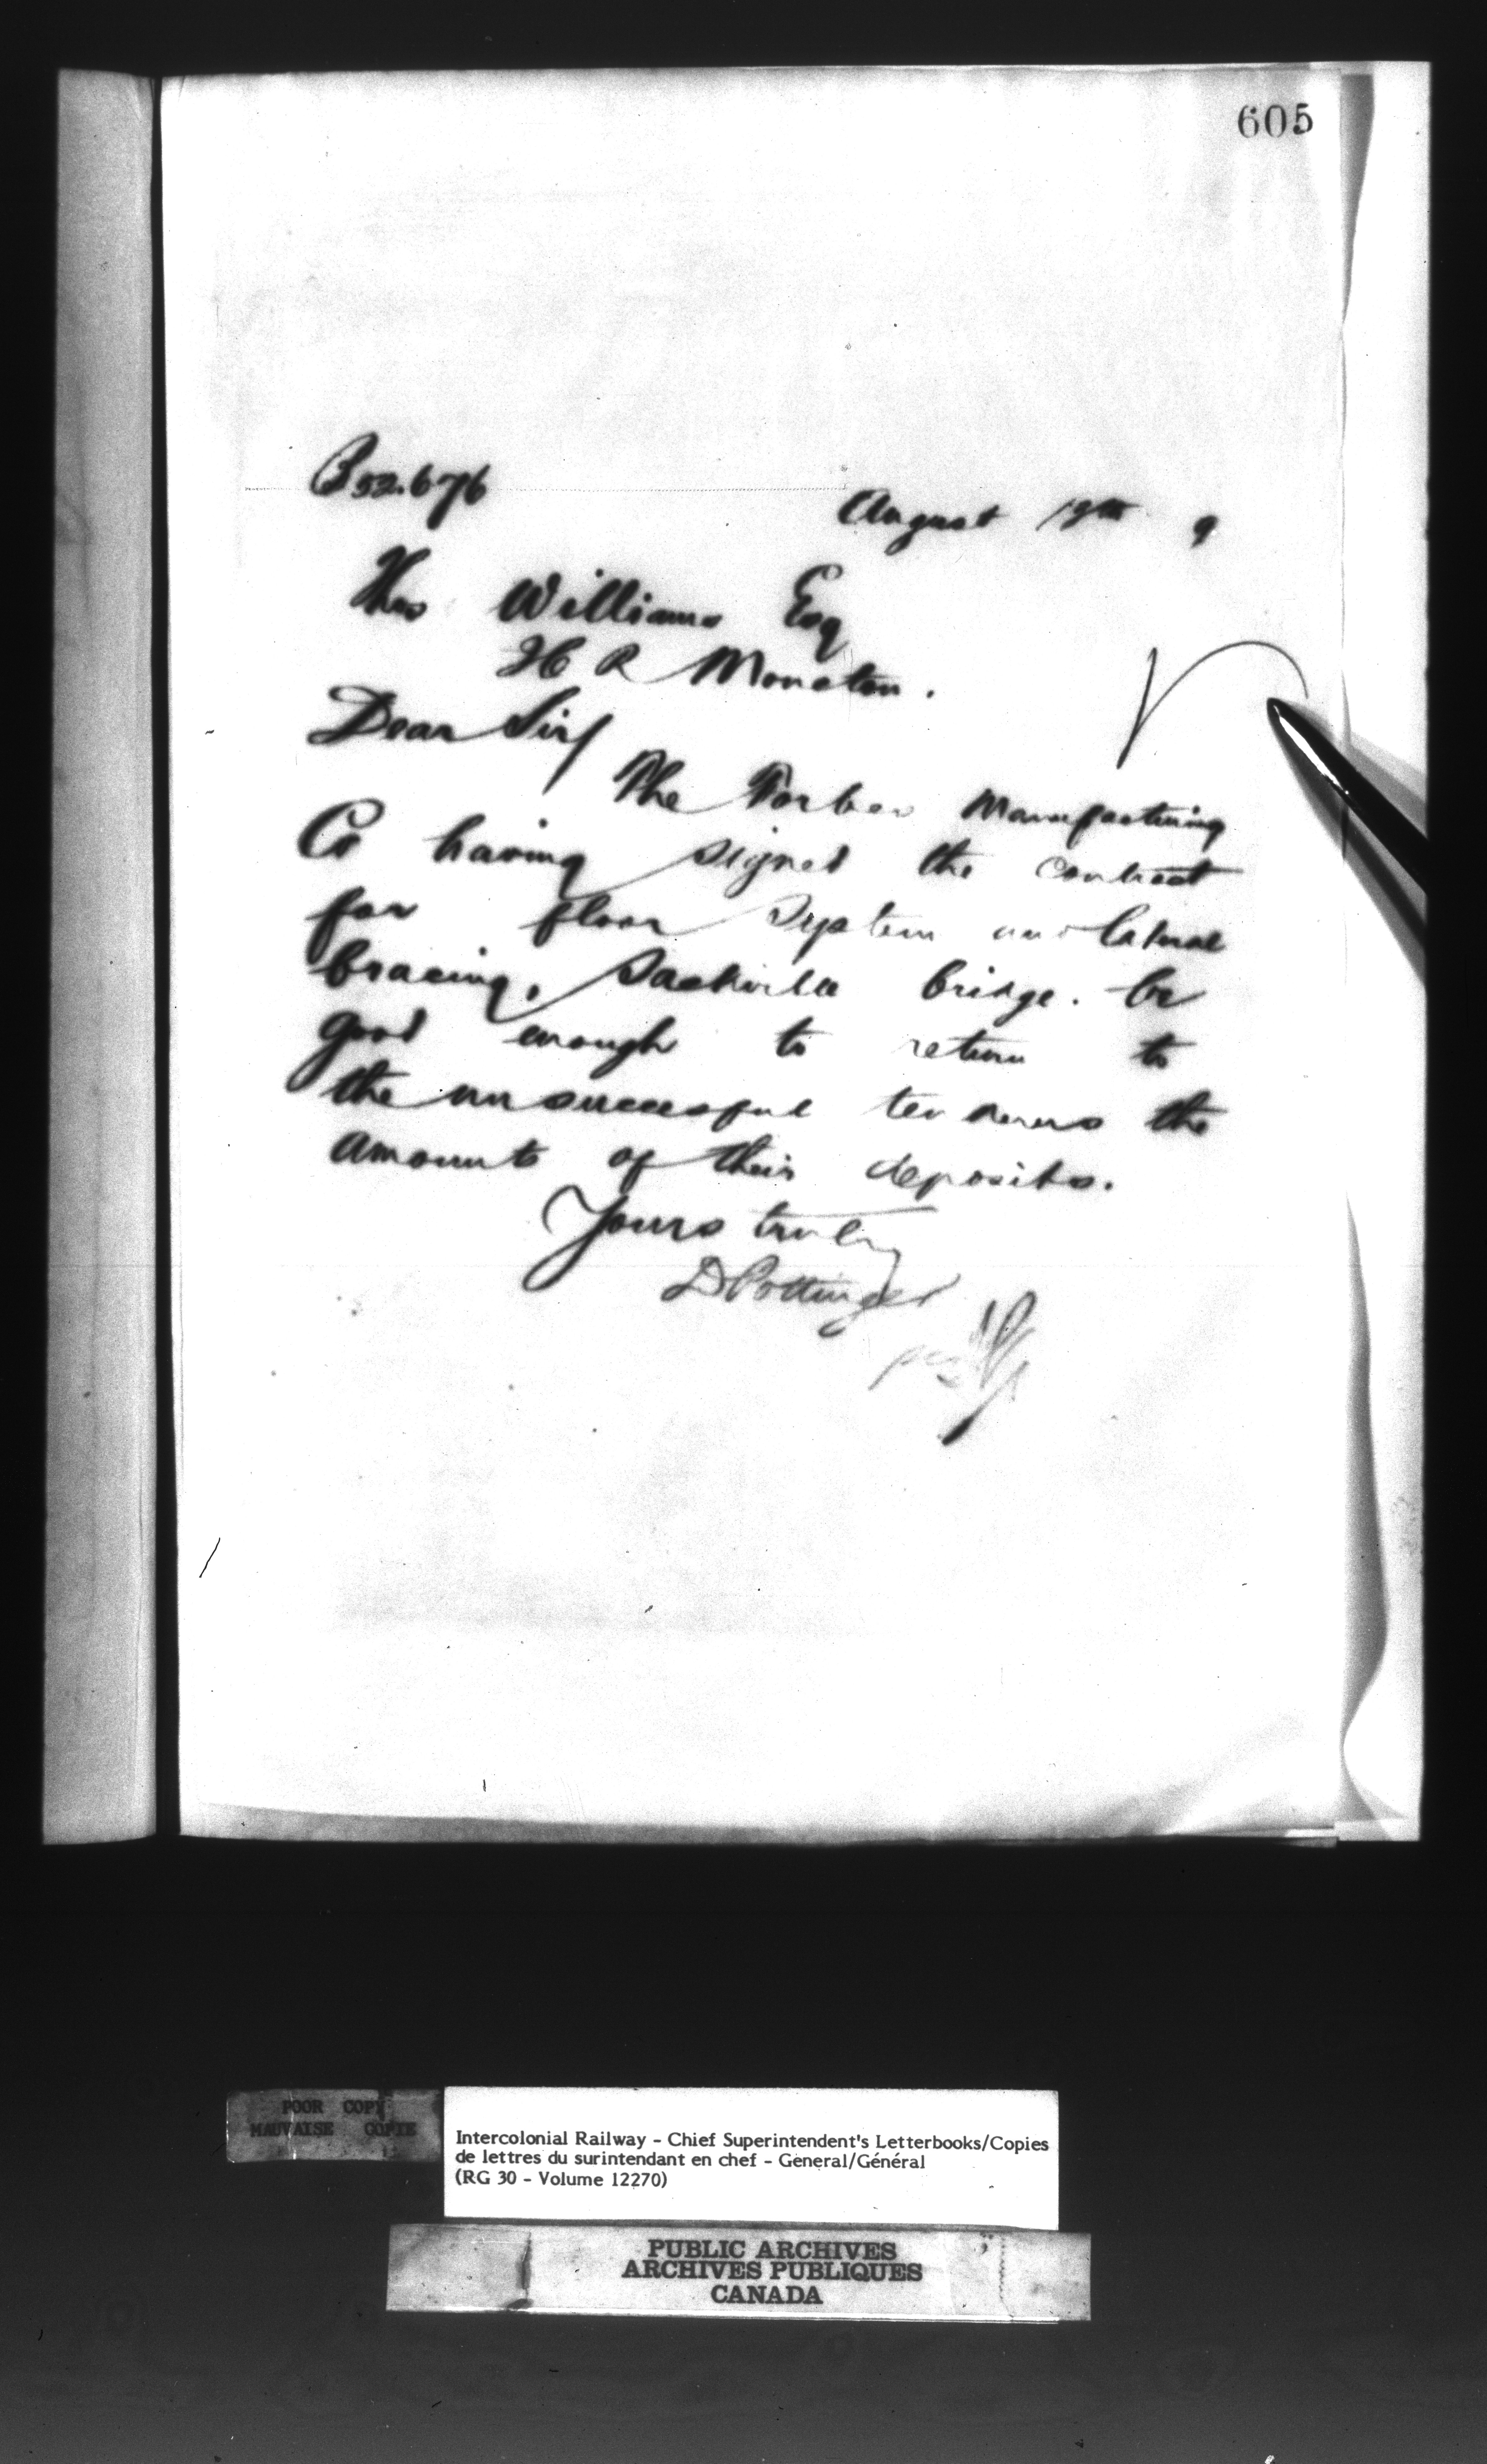 605
B 52.676
August 19th 9
Thos Williams Esq
H R Moncton.
Dear Sir/
The Forbes Manufacturing
Co having signed the contract
for floor system and lateral
bracing, Sackville bridge. be
good enough to return to
the unsuccessful tenderers the
amounts of their deposits.
Yours truly
D Pottinger
per
POOR COPY
MAUVAISE COPIE
Intercolonial Railway - Chief Superintendent's Letterbooks/Copies
de lettres du surintendant en chef - General/Général
(RG 30 - Volume 12270)
PUBLIC ARCHIVES
ARCHIVES PUBLIQUES
CANADA